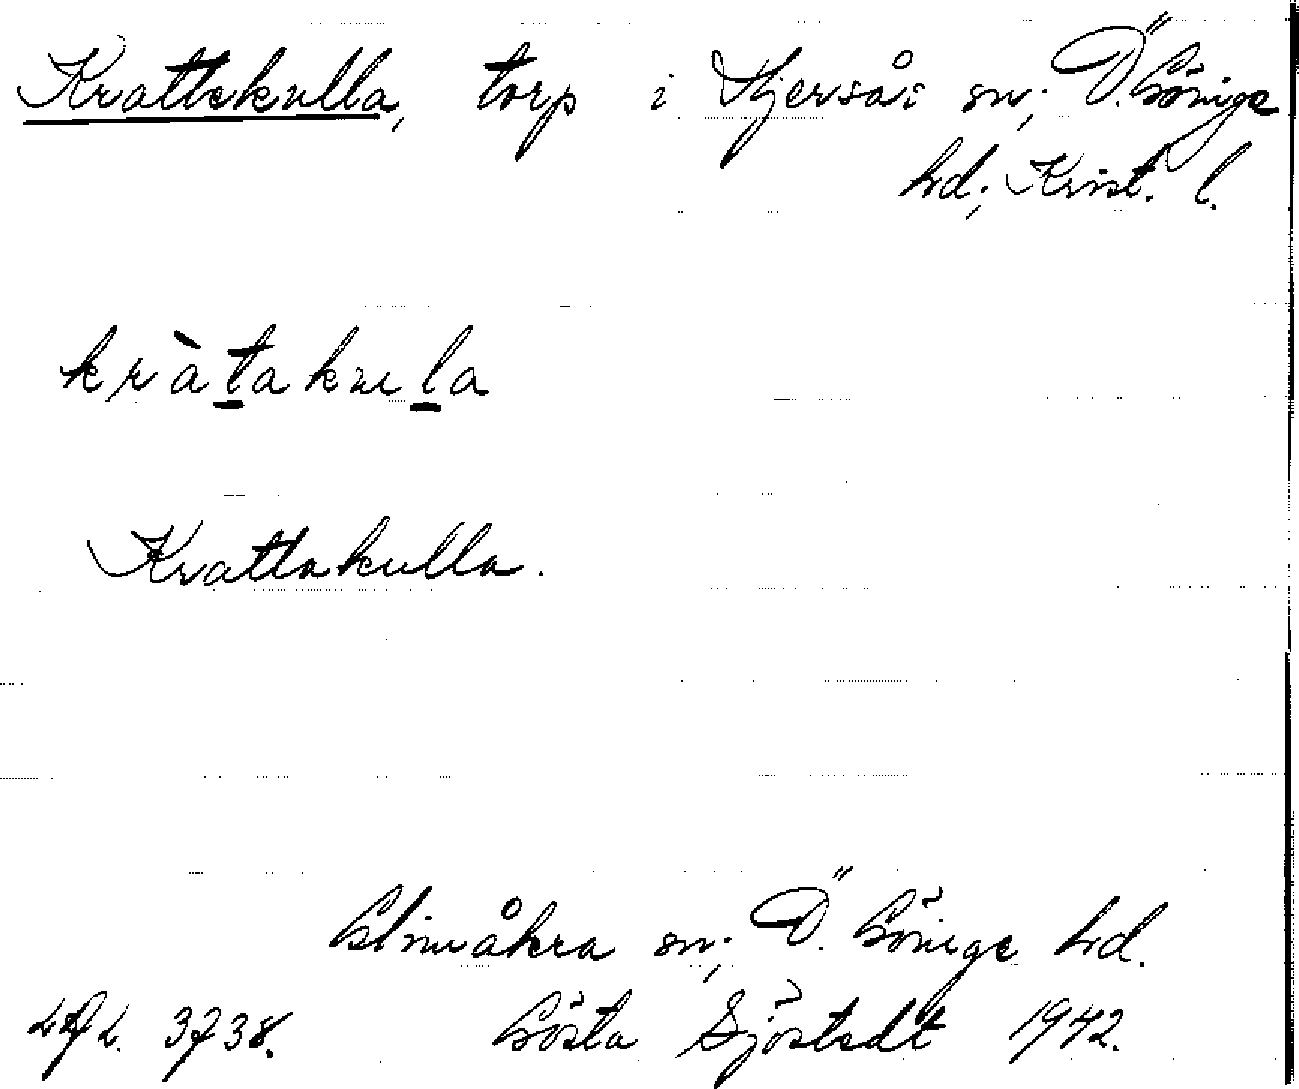 Krattekulla, torp i Hjersås sn; Ö. Göinge
hd; Krist. l.
kràtakula
Krattakulla.
Glimåkra sn; Ö. Göinge hd.
3738. Gösta Sjöstedt 1942.